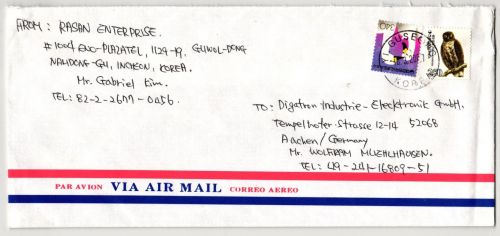 FROM: RASAN ENTERPRISE.
#1004 ENO-PLAZATEL, 1129-19. GUWOL-DONG
NAMDONG-GU, INCHEON, KOREA.
Mr. Gabriel Kim.
TEL: 82-2-2677-0456
340
KOREA
TO: Digatron Industrie-Elecktronik GmbH.
Tempelhofer Strasse 12-14 52068
Aachen/Germany
Mr. WOLFRAM MUEHLHAUSEN.
TEL: 49-241-16809-51
PAR AVION VIA AIR MAIL CORREO AEREO